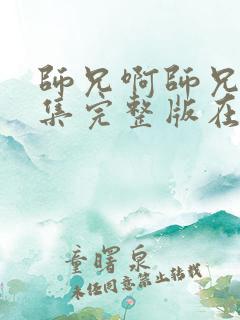 師兄啊師兄
集完整版在
童曙泉
未经同意禁止转载